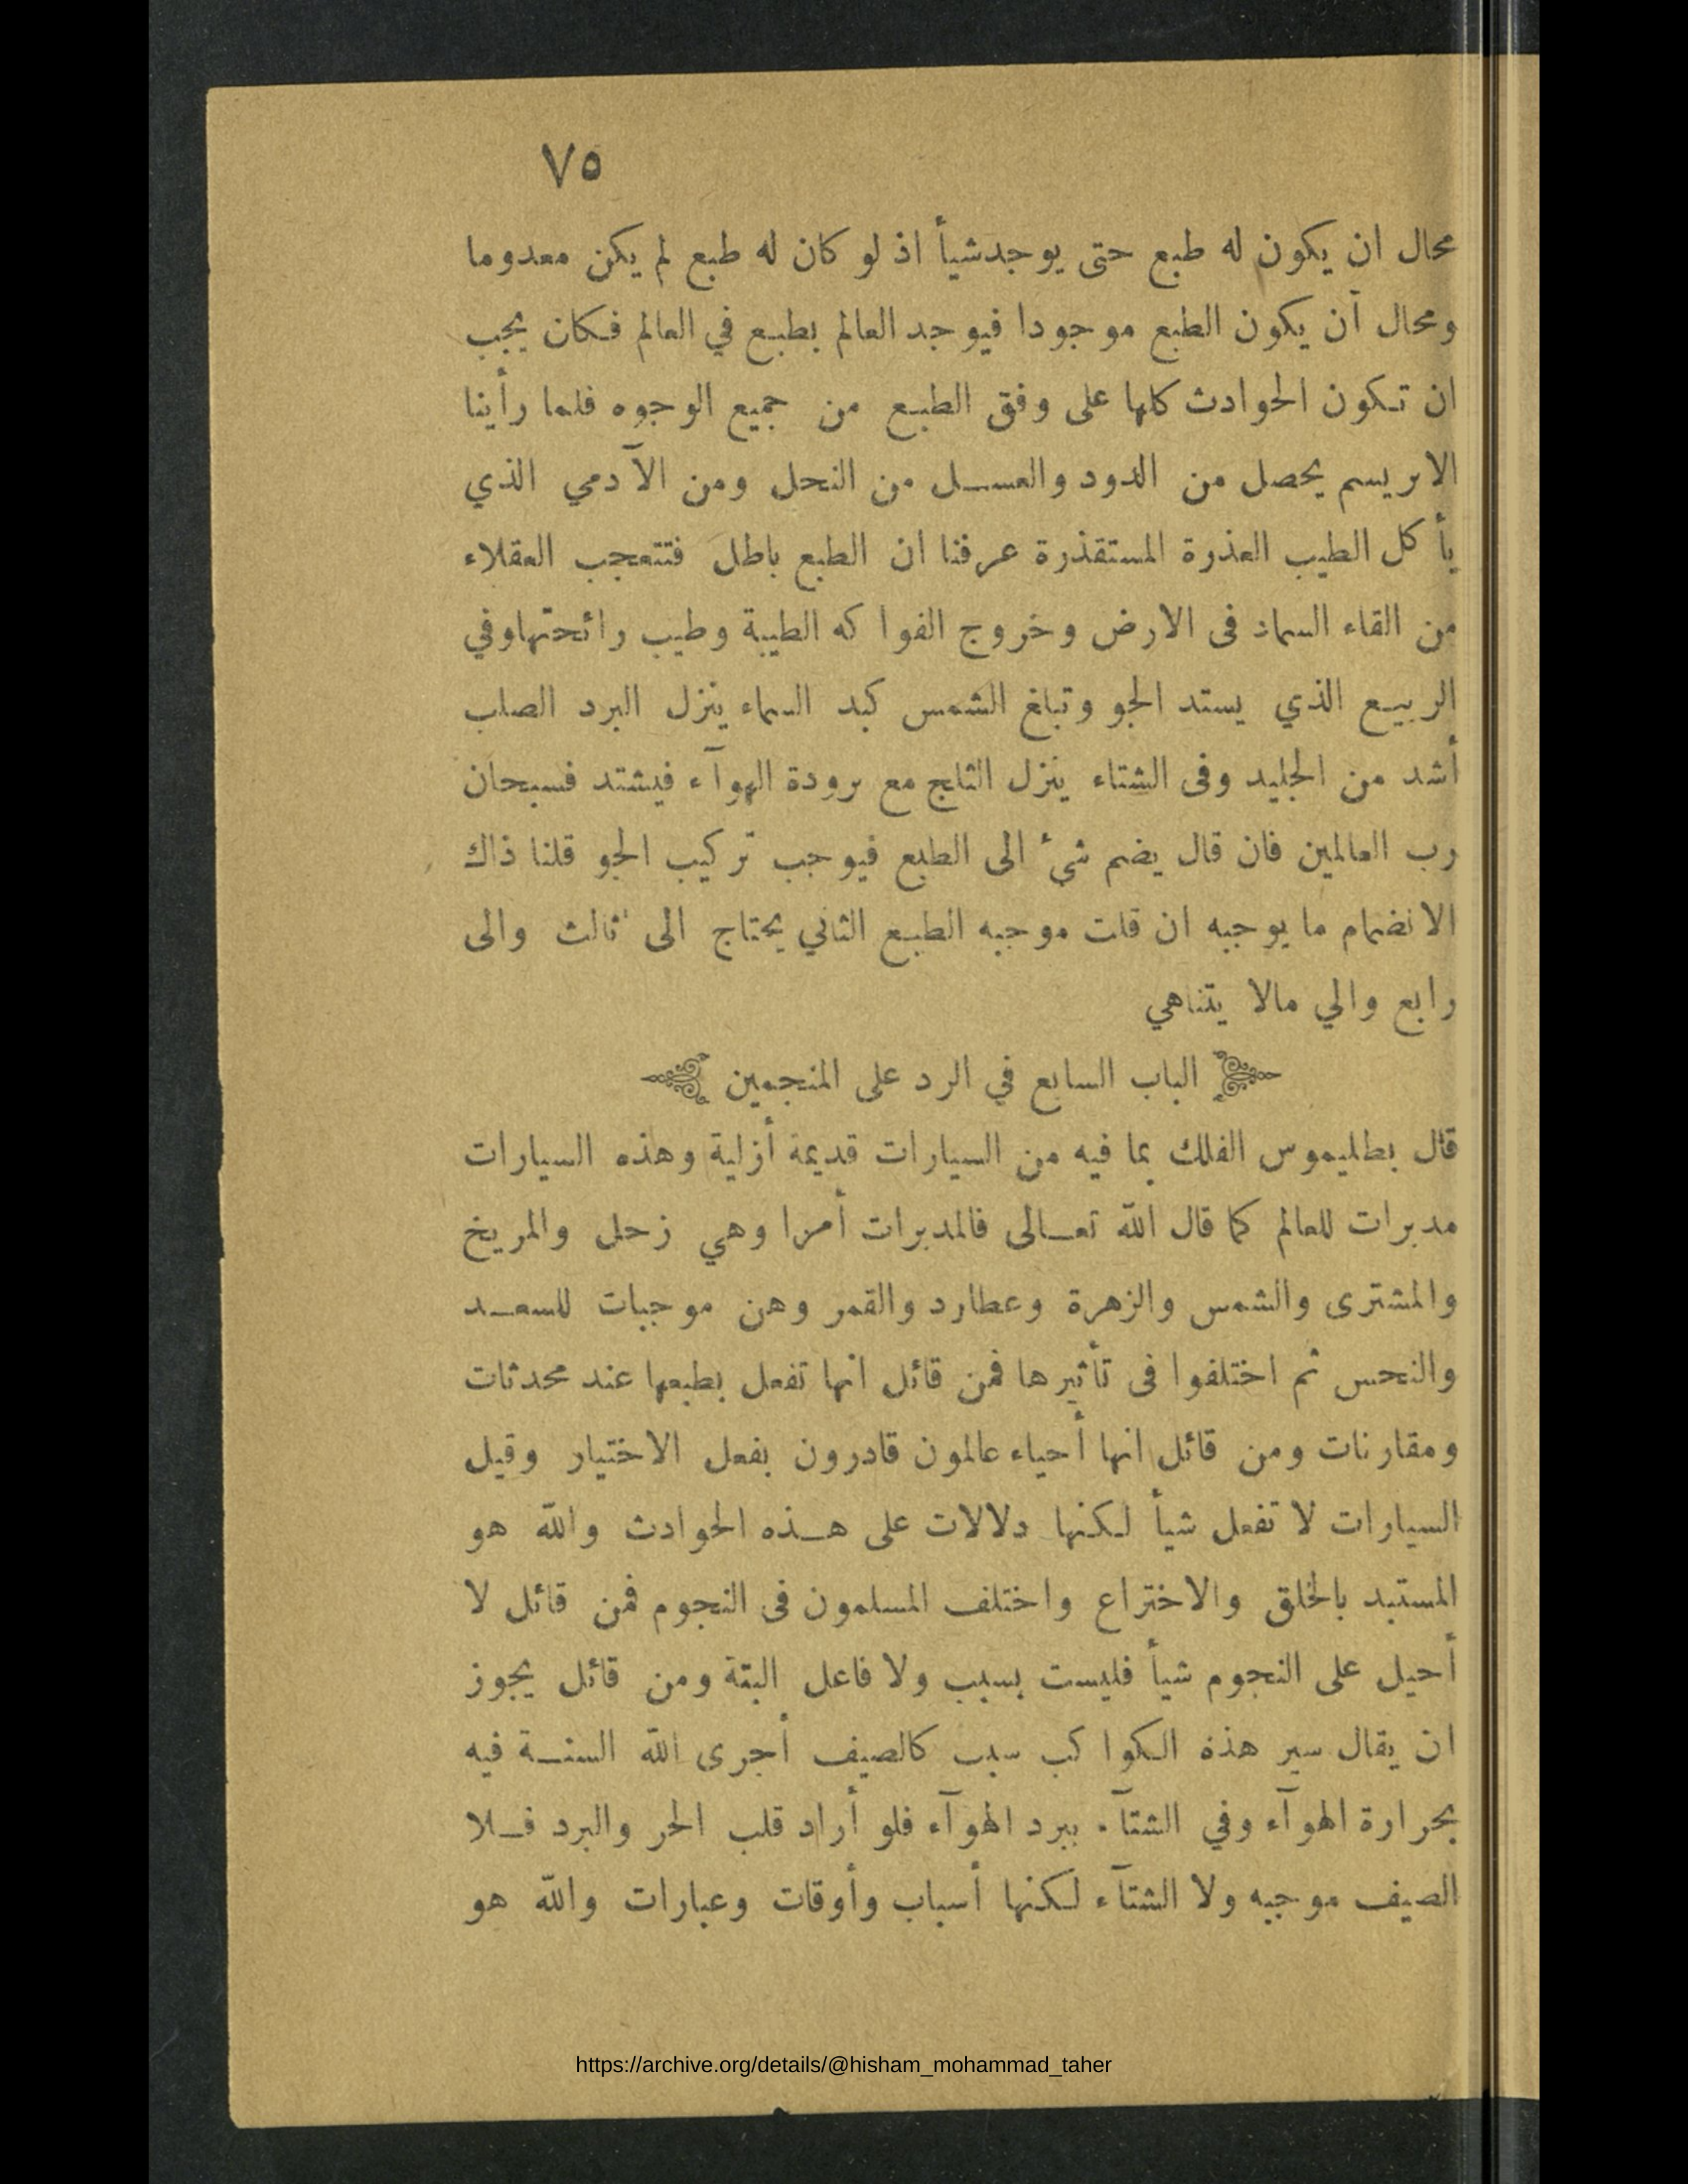 ٧٥
محال ان يكون له طبع حتى يوجدشيأ اذ لو كان له طبع لم يكن معدوما
ومحال أن يكون الطبع موجودا فيوجد العالم بطبع في العالم فكان يجب
ان تكون الحوادث كلها على وفق الطبع من جميع الوجوه فلما رأينا
الابريسم يحصل من الدود والعسل من النحل ومن الآدمي الذي
يأكل الطيب العذرة المستقذرة عرفنا ان الطبع باطل فتتعجب العقلاء
من القاء السماد فى الارض وخروج الفواكه الطيبة وطيب رائحتهاوفي
الربيع الذي يستد الجو وتبلغ الشمس كبد السماء ينزل البرد الصلب
أشد من الجليد وفى الشتاء ينزل الثلج مع برودة الهوآء فيشتد فسبحان
رب العالمين فان قال يضم شئ الى الطبع فيوجب تركيب الجو قلنا ذاك
الانضمام ما يوجبه ان قلت موجبه الطبع الثاني يحتاج الى ثالث والى
رابع والي مالا يتناهي
الباب السابع في الرد على المنجمين
قال بطليموس الفلك بما فيه من السيارات قديمة أزلية وهذه السيارات
مدبرات للعالم كما قال الله تعالى فالمدبرات أمرا وهي زحل والمريخ
والمشترى والشمس والزهرة وعطارد والقمر وهن موجبات للسعد
والنحس ثم اختلفوا فى تأثيرها فمن قائل انها تفعل بطبعها عند محدثات
ومقارنات ومن قائل انها أحياء عالمون قادرون بفعل الاختيار وقيل
السيارات لا تفعل شيأ لكنها دلالات على هذه الحوادث والله هو
المستبد بالخلق والاختراع واختلف المسلمون فى النجوم فمن قائل لا
أحيل على النجوم شيأ فليست بسبب ولا فاعل البتة ومن قائل يجوز
ان يقال سير هذه الكواكب سبب كالصيف أجرى الله السنة فيه
بحرارة الهوآء وفي الشتآء ببرد الهوآء فلو أراد قلب الحر والبرد فلا
الصيف موجبه ولا الشتآء لكنها أسباب وأوقات وعبارات والله هو
https://archive.org/details/@hisham_mohammad_taher